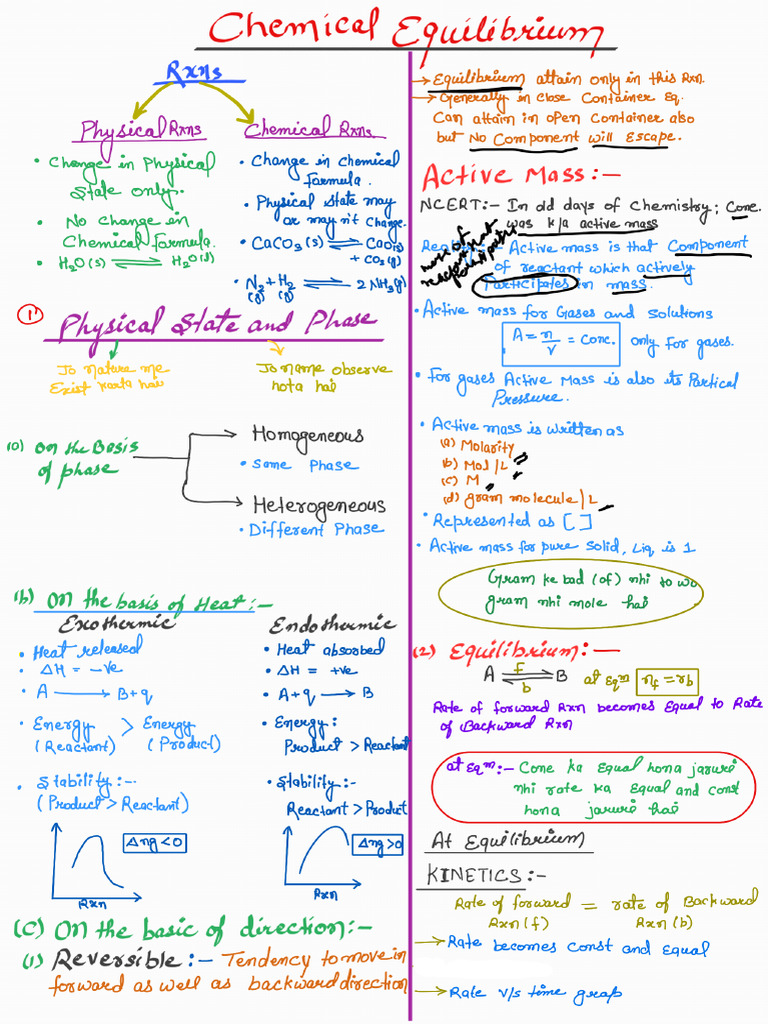 Chemical Equilibrium
Rxns
Physical Rxns
• Change in Physical
State only.
• No Change in
Chemical Formula.
• H₂O(s) ⇌ H₂O(l)
Chemical Rxns
• Change in Chemical
formula.
• Physical State may
or may n't Change.
• CaCO₃(s) ⇌ CaO(s)
+ CO₂(g)
• N₂ + H₂ ⇌ 2 NH₃(g)
(g) (g)
(1) Physical State and Phase
Jo nature me
Exist karta hai
Jo name observe
hota hai
(a) On the Basis
of phase
Homogeneous
• Same Phase
Heterogeneous
• Different Phase
(b) On the basis of Heat:-
Exothermic
• Heat released
• ΔH = -ve
• A → B+q
• Energy > Energy
(Reactant) (Product)
• Stability:-
(Product > Reactant)
Δng<0
Rxn
Endothermic
• Heat absorbed
• ΔH = +ve
• A+q → B
• Energy:
Product > Reactant
• Stability:-
Reactant > Product
Δng>0
Rxn
(C) On the basic of direction:-
(1) Reversible:- Tendency to move in
forward as well as backward direction
→ Equilibrium attain only in this Rxn.
→ Generally in close Container Eq.
Can attain in open Container also
but No Component will Escape.
Active Mass:-
NCERT:- In old days of Chemistry; Conc.
was k/a active mass
Active mass is that Component
of reactant which actively
Participates in mass.
• Active mass for Gases and Solutions
A = n/V = Conc. only for gases.
• For gases Active Mass is also its Partical
Pressure.
• Active mass is written as
(a) Molarity
(b) Mol/L
(c) M
(d) gram molecule/L
• Represented as [ ]
• Active mass for pure Solid, Liq. is 1
Gram ke bad (of) nhi to wo
gram nhi mole hai
(2) Equilibrium:-
A ⇌ B at Eqᵐ rf = rb
f
b
Rate of forward Rxn becomes Equal to Rate
of Backward Rxn
at Eqᵐ:- Conc ka Equal hona jaruri
nhi rate ka Equal and const
hona jaruri hai
At Equilibrium
KINETICS:-
Rate of forward = rate of Backward
Rxn(f) Rxn(b)
→ Rate becomes Const and Equal
→ Rate v/s time grap